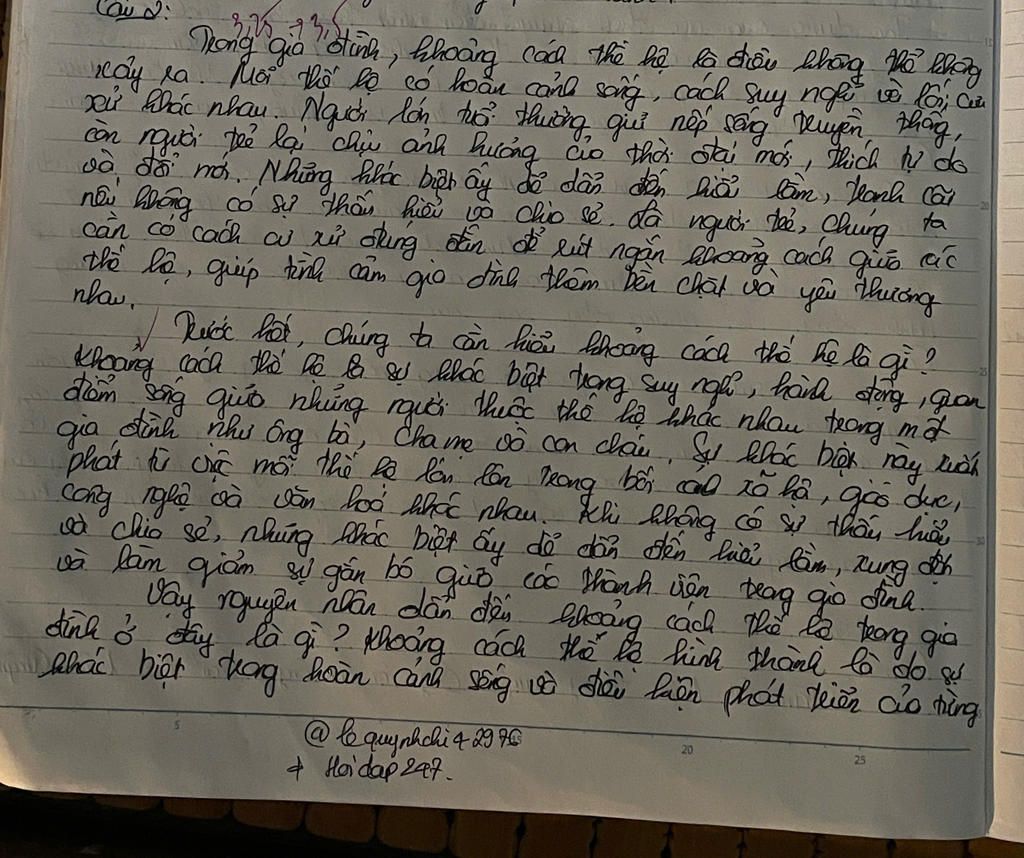 Câu 2:
3,25 → 3,5
Trong gia đình, khoảng cách thế hệ là điều không thể không
xảy ra. Mỗi thế hệ có hoàn cảnh sống, cách suy nghĩ và lối cư
xử khác nhau. Người lớn tuổi thường giữ nếp sống truyền thống,
còn người trẻ lại chịu ảnh hưởng của thời đại mới, thích tự do
và đổi mới. Những khác biệt ấy dễ dẫn đến hiểu lầm, tranh cãi
nếu không có sự thấu hiểu và chia sẻ. Là người trẻ, chúng ta
cần có cách cư xử đúng đắn để rút ngắn khoảng cách giữa các
thế hệ, giúp tình cảm gia đình thêm bền chặt và yêu thương
nhau.
Trước hết, chúng ta cần hiểu khoảng cách thế hệ là gì?
Khoảng cách thế hệ là sự khác biệt trong suy nghĩ, hành động, quan
điểm sống giữa những người thuộc thế hệ khác nhau trong một
gia đình như ông bà, cha mẹ và con cháu. Sự khác biệt này xuất
phát từ việc mỗi thế hệ lớn lên trong bối cảnh xã hội, giáo dục,
công nghệ và văn hoá khác nhau. Khi không có sự thấu hiểu
và chia sẻ, những khác biệt ấy dễ dẫn đến hiểu lầm, xung đột
và làm giảm sự gắn bó giữa các thành viên trong gia đình.
Vậy nguyên nhân dẫn đến khoảng cách thế hệ trong gia
đình ở đây là gì? Khoảng cách thế hệ hình thành là do sự
khác biệt trong hoàn cảnh sống và điều kiện phát triển của từng
5 20 25
@lequynhchi4297
+ Hoidap247.